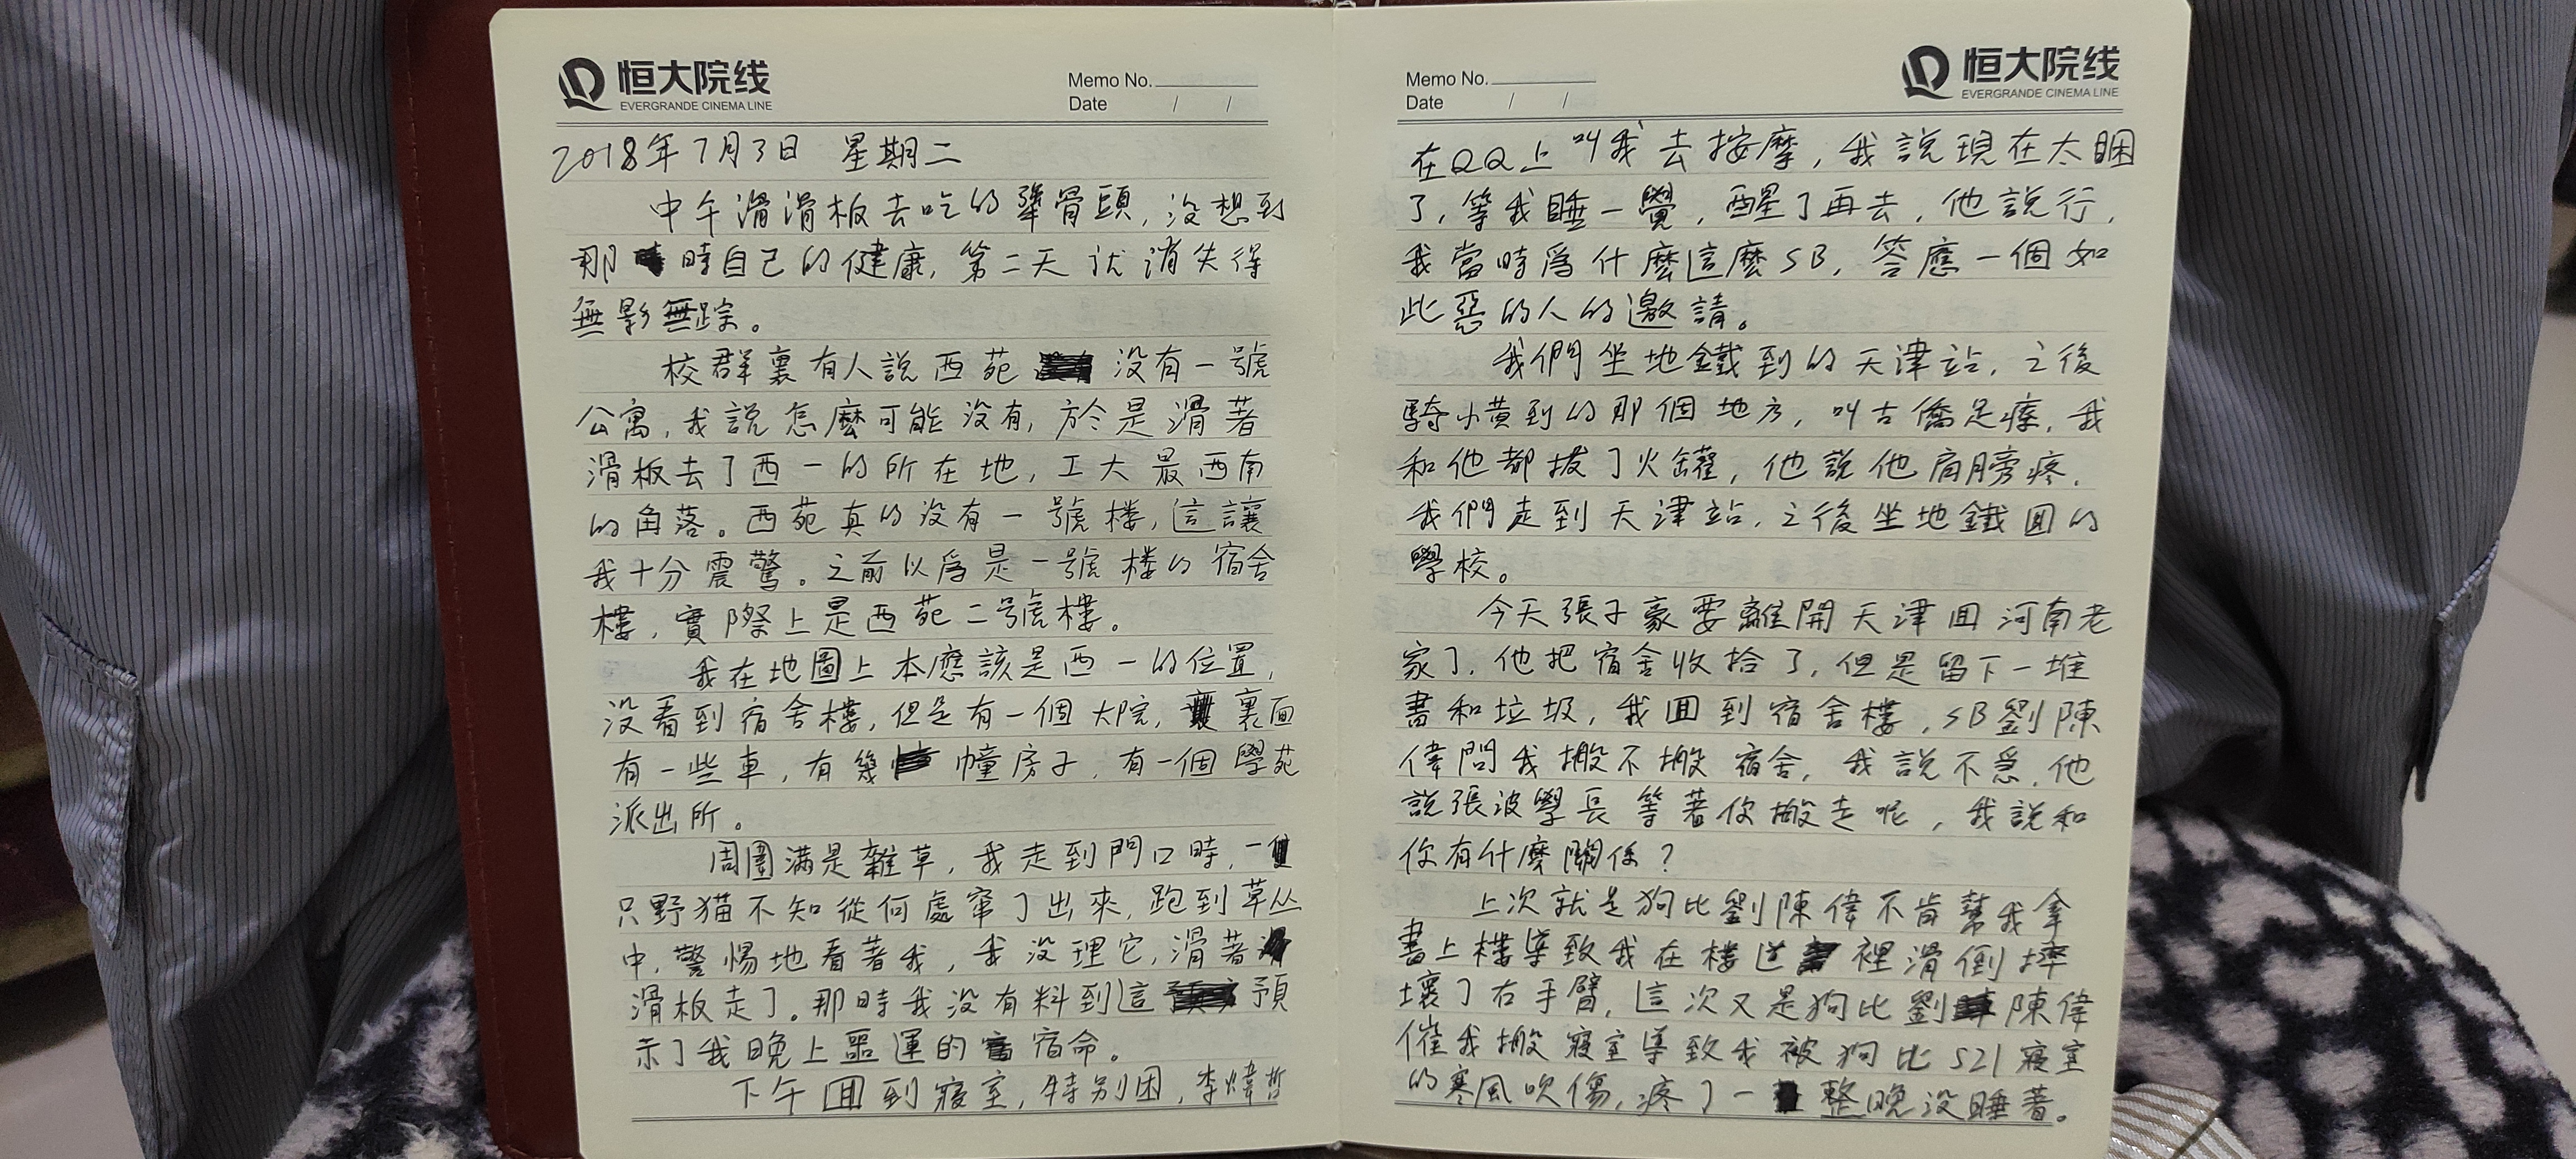 恒大院线
EVERGRANDE CINEMA LINE
Memo No.
Date / /
2018年7月3日 星期二
中午滑滑板去吃的犟骨頭,没想到
那時自己的健康,第二天就消失得
無影無踪。
校群裏有人説西苑没有一號
公寓,我説怎麽可能没有,於是滑著
滑板去了西一的所在地,工大最西南
的角落。西苑真的没有一號樓,這讓
我十分震驚。之前以爲是一號樓的宿舍
樓,實際上是西苑二號樓。
我在地圖上本應該是西一的位置,
没看到宿舍樓,但是有一個大院,裏面
有一些車,有幾幢房子,有一個學苑
派出所。
周圍满是雜草,我走到門口時,一
只野猫不知從何處窜了出來,跑到草丛
中,警惕地看著我,我没理它,滑著
滑板走了。那時我没有料到這預
示了我晚上噩運的宿命。
下午回到寢室,特别困,李煒哲
恒大院线
EVERGRANDE CINEMA LINE
Memo No.
Date / /
在QQ上叫我去按摩,我説現在太睏
了,等我睡一覺,醒了再去,他説行,
我當時爲什麽這麽SB,答應一個如
此惡的人的邀請。
我們坐地鐵到的天津站,之後
騎小黄到的那個地方,叫古僑足療,我
和他都拔了火罐,他説他肩膀疼,
我們走到天津站,之後坐地鐵回的
學校。
今天張子豪要離開天津回河南老
家了,他把宿舍收拾了,但是留下一堆
書和垃圾,我回到宿舍樓,SB劉陳
偉問我搬不搬宿舍,我説不急,他
説張波學長等著你搬走呢,我説和
你有什麽關係?
上次就是狗比劉陳偉不肯幫我拿
書上樓導致我在樓道裡滑倒摔
壞了右手臂,這次又是狗比劉陳偉
催我搬寢室導致我被狗比521寢室
的寒風吹傷,疼了一整晚没睡著。